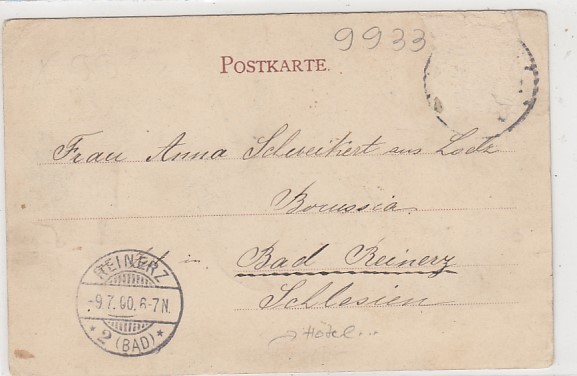 9933
POSTKARTE.
Frau Anna Schweikert aus Lodz
Borussia
in Bad Reinerz
Schlesien
Hôtel...
REINERZ
-9.7.00.6-7N.
* 2 (BAD) *